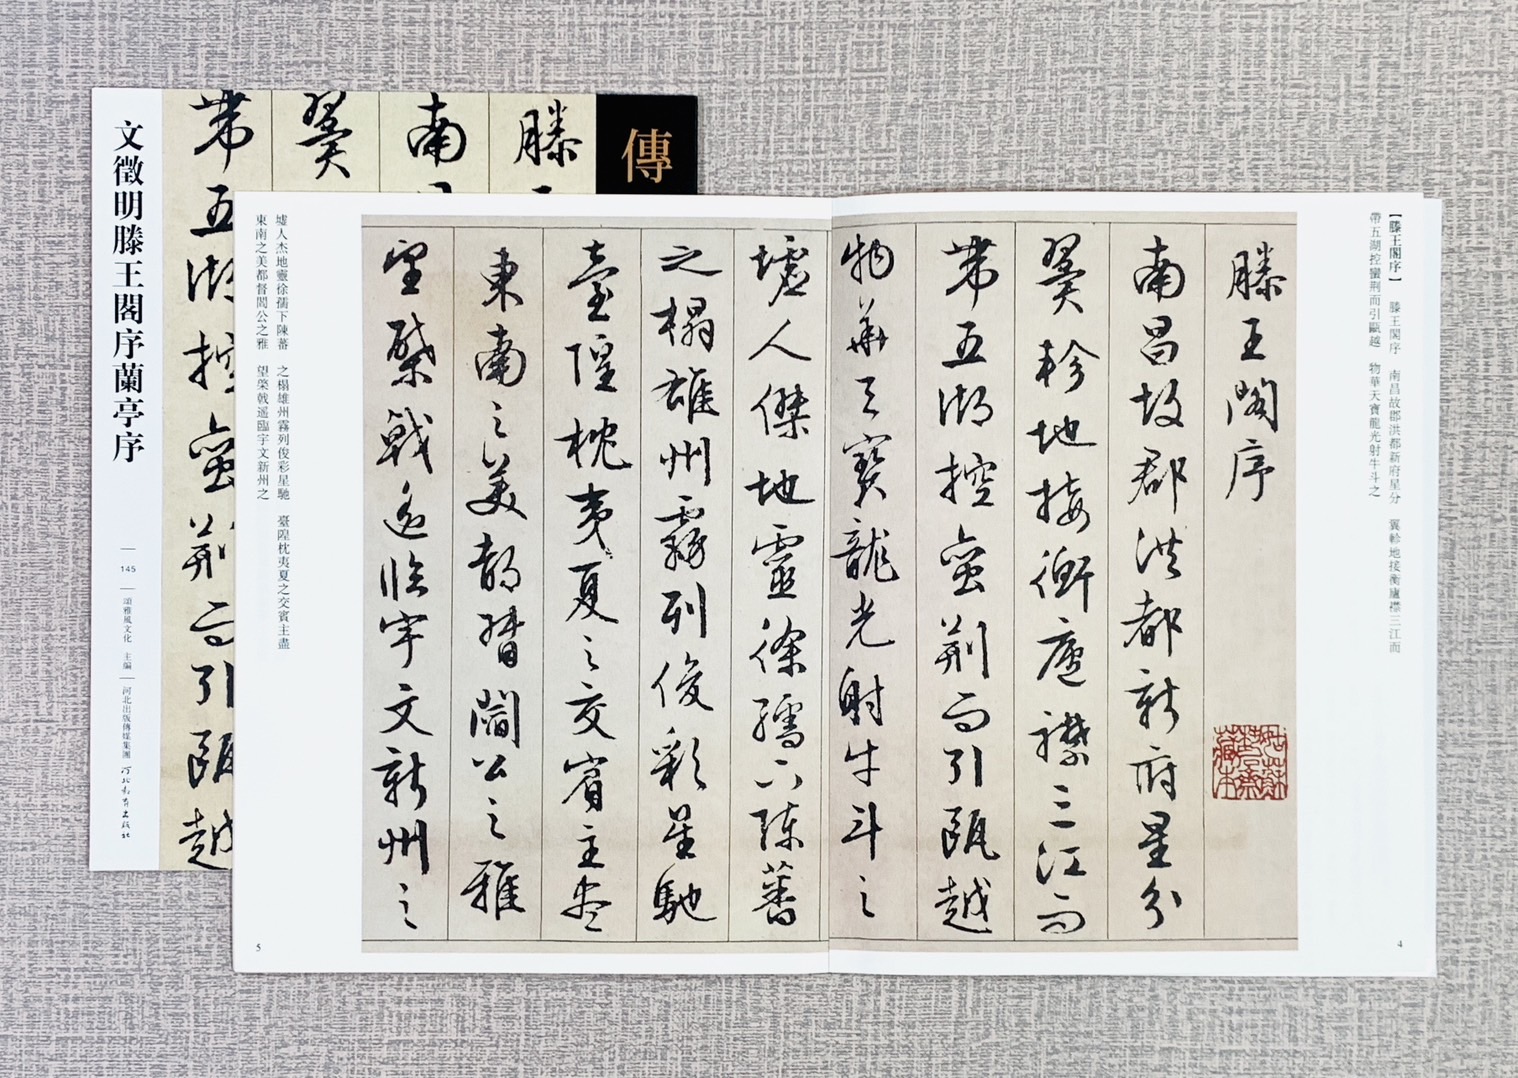 文徵明滕王閣序蘭亭序
145
頌雅風文化 主編
河北出版傳媒集團
河北教育出版社
傳
滕王
南
翼
帶五湖控蠻荆而引甌越
【滕王閣序】 滕王閣序 南昌故郡洪都新府星分 翼軫地接衡廬襟三江而
帶五湖控蠻荆而引甌越 物華天寶龍光射牛斗之
滕王閣序
南昌故郡洪都新府星分
翼軫地接衡廬襟三江而
帶五湖控蠻荆而引甌越
物華天寶龍光射牛斗之
墟人傑地靈徐孺下陳蕃
之榻雄州霧列俊彩星馳
臺隍枕夷夏之交賓主盡
東南之美都督閻公之雅
望棨戟遥臨宇文新州之
墟人杰地靈徐孺下陳蕃 之榻雄州霧列俊彩星馳 臺隍枕夷夏之交賓主盡
東南之美都督閻公之雅 望棨戟遥臨宇文新州之
4
5